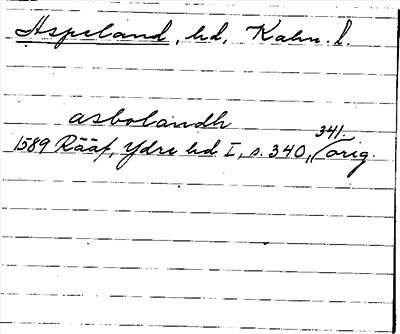 Aspeland, hd, Kalm. l.
asbolandh
1589 Rääf, Ydre hd I, s. 340, 341. orig.